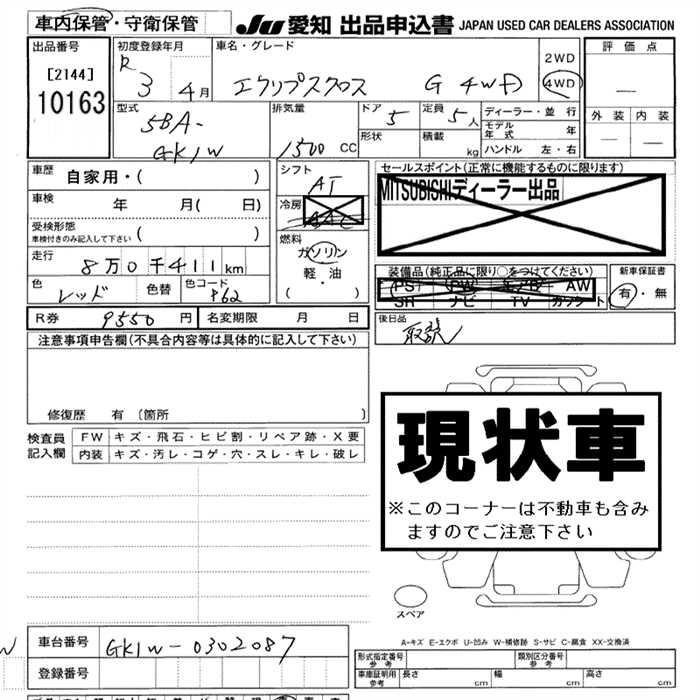 車内保管・守衛保管
JU 愛知 出品申込書 JAPAN USED CAR DEALERS ASSOCIATION
出品番号
[2144]
10163
初度登録年月
R 3 4月
車名・グレード
エクリプスクロス G 4WD
2WD
4WD
評価点
外装 内装
型式
5BA-
GK1W
排気量
1500 CC
ドア 5
定員 5人
形状
積載 kg
ディーラー・並行
モデル年式 年
ハンドル 左・右
車歴 自家用・( )
車検 年 月( 日)
受検形態
車検付きのみ記入して下さい ( )
走行 8万0千411km
色 レッド 色替 色コード P62
シフト AT
冷房 AAC
燃料
ガソリン
軽・油
( ・ )
セールスポイント(正常に機能するものに限ります)
MITSUBISHIディーラー出品
装備品(純正品に限り○をつけてください)
PS PW エアB AW
SR ナビ TV カワシート
新車保証書
有・無
R券 9550円 名変期限 月 日
後日品
取説
注意事項申告欄(不具合内容等は具体的に記入して下さい)
修復歴 有 (箇所 )
検査員記入欄
FW キズ・飛石・ヒビ割・リペア跡・X要
内装 キズ・汚レ・コゲ・穴・スレ・キレ・破レ
現状車
※このコーナーは不動車も含み
ますのでご注意下さい
スペア
A-キズ E-エクボ U-凹み W-補修跡 S-サビ C-腐食 XX-交換済
車台番号 GK1W-0302087
登録番号
形式指定番号参考
類別区分番号参考
車庫証明用参考 長さ cm 幅 cm 高さ cm